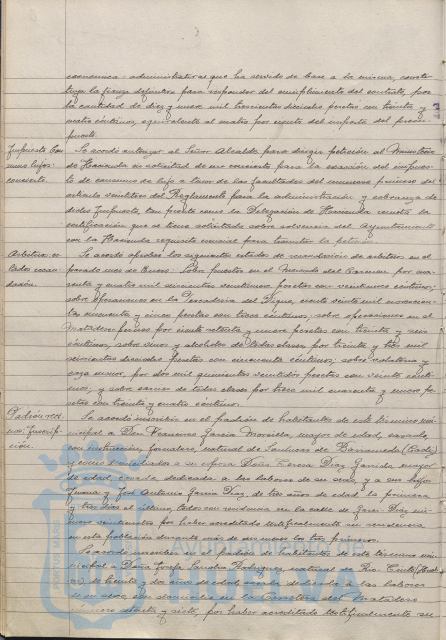 económica-administrativas que ha servido de base a la misma, consti-
tuya la fianza definitiva para responder del cumplimiento del contrato, por
la cantidad de diez y nueve mil trescientas dieciseis pesetas con treinta y
cuatro céntimos, equivalente al cuatro por ciento del importe del presu-
puesto.
Impuesto Con-
sumos lujos:
concierto.
Se acordó autorizar al Señor Alcalde para dirigir petición al Ministerio
de Hacienda en solicitud de un concierto para la exacción del impues-
to de consumo de lujo a tenor de las facultades del número primero del
artículo veintitres del Reglamento para la administración y cobranza de
dicho Impuesto, tan pronto como la Delegación de Hacienda remita la
certificación que se tiene solicitada sobre solvencia del Ayuntamiento
con la Hacienda requisito esencial para tramitar la petición.
Arbitrios: es-
tados recau-
dación.
Se acordó aprobar los siguientes estados de recaudación de arbitrios en el
pasado mes de Enero: Sobre puestos en el Mercado del Carmen por cua-
renta y cuatro mil seiscientas veintinueve pesetas con veintinueve céntimos;
sobre operaciones en la Pescadería del Digue, ciento veinte mil novecien-
tas cincuenta y cinco pesetas con trece céntimos; sobre operaciones en el
Matadero fueron por ciento setenta y nueve pesetas con treinta y seis
céntimos; sobre vinos y alcoholes de todas clases por treinta y tres mil
seiscientas dieciocho pesetas con cincuenta céntimos; sobre volatería y
caza menor, por dos mil cuarenta y veintidos pesetas con veinte cénti-
mos; y sobre carnes de todas clases por trece mil cuarenta y nueve pe-
setas con treinta y cuatro céntimos.
Padrón veci-
nos: Inscrip-
ción.
Se acordó inscribir en el padrón de habitantes de este término mu-
nicipal a Don Francisco García Morcillo, mayor de edad, casado,
con instrucción, jornalero, natural de Sanlúcar de Barrameda (Cádiz)
y como domiciliados a su esposa Doña Teresa Díaz Garrido, mayor
de edad, casada, dedicada a las labores de su sexo, y a sus hijos
Juana y José Antonio García Díaz, de tres años de edad la primera
y tres días el último, todos con residencia en la calle de
número veintisiete por haber acreditado testificalmente su residencia
en esta población durante más de seis meses los tres primeros.
Se acordó inscribir en el padrón de habitantes de este término mu-
nicipal a Doña Josefa Rodríguez, natural de Rio-Tinto (Huel-
va) de treinta y dos años de edad, casada, dedicada a las labores
de su sexo, con domicilio en la Carretera del Matadero
número sesenta y siete, por haber acreditado testificalmente su